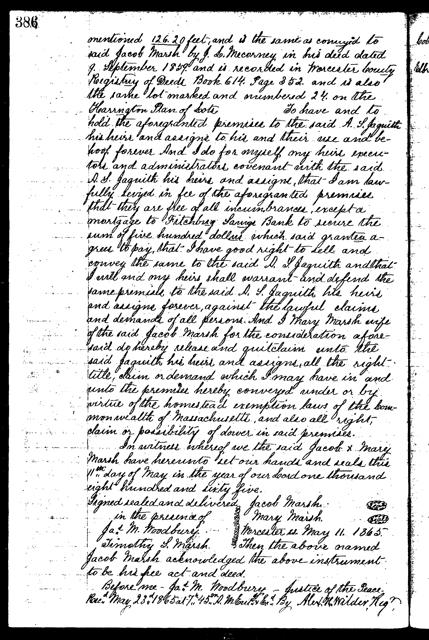 386
mentioned 126.20 feet, and is the same as convey'd to
said Jacob Marsh by J. C. Mccorney in his deed dated
9. September 1859 and is recorded in Worcester County
Registry of Deeds Book 614. Page 352 and is also
the same lot marked and numbered 24 on the
Harrington Plan of Lots. To have and to
hold the aforegranted premises to the said A. S. Jaquith
his heirs and assigns to his and their use and be-
hoof forever. And I do for myself my heirs execu-
tors and administrators covenant with the said
A. S. Jaquith his heirs and assigns, that I am law-
fully seized in fee of the aforegranted premises
that they are free of all incumbrances, except a
mortgage to Fitchburg Savings Bank to secure the
sum of five hundred dollars which said grantee a-
grees to pay, that I have good right to sell and
convey the same to the said A. S. Jaquith and that
I will and my heirs shall warrant and defend the
same premises to the said A. S. Jaquith his heirs
and assigns forever, against the lawful claims
and demands of all persons. And I Mary Marsh wife
of the said Jacob Marsh for the consideration afore-
said do hereby release and quitclaim unto the
said Jaquith his heirs and assigns, all the right
title, claim or demand which I may have in and
unto the premises hereby convey'd under or by
virtue of the homestead exemption laws of the Com-
monwealth of Massachusetts, and also all right,
claim or possibility of dower in said premises.
In witness whereof we the said Jacob & Mary
Marsh have hereunto set our hands and seals this
11th day of May in the year of our Lord one thousand
eight hundred and sixty five.
Signed sealed and delivered Jacob Marsh. Seal
in the presence of Mary Marsh. Seal
Jas. M. Woodbury. Worcester ss May 11. 1865.
Timothy S. Marsh. Then the above named
Jacob Marsh acknowledged the above instrument
to be his free act and deed.
Before me - Jas. M. Woodbury - Justice of the Peace
Recd. May 23d 1865 at 7h. 45m A. M. Entd & Exd. By Alex. H. Wilder, Regr.